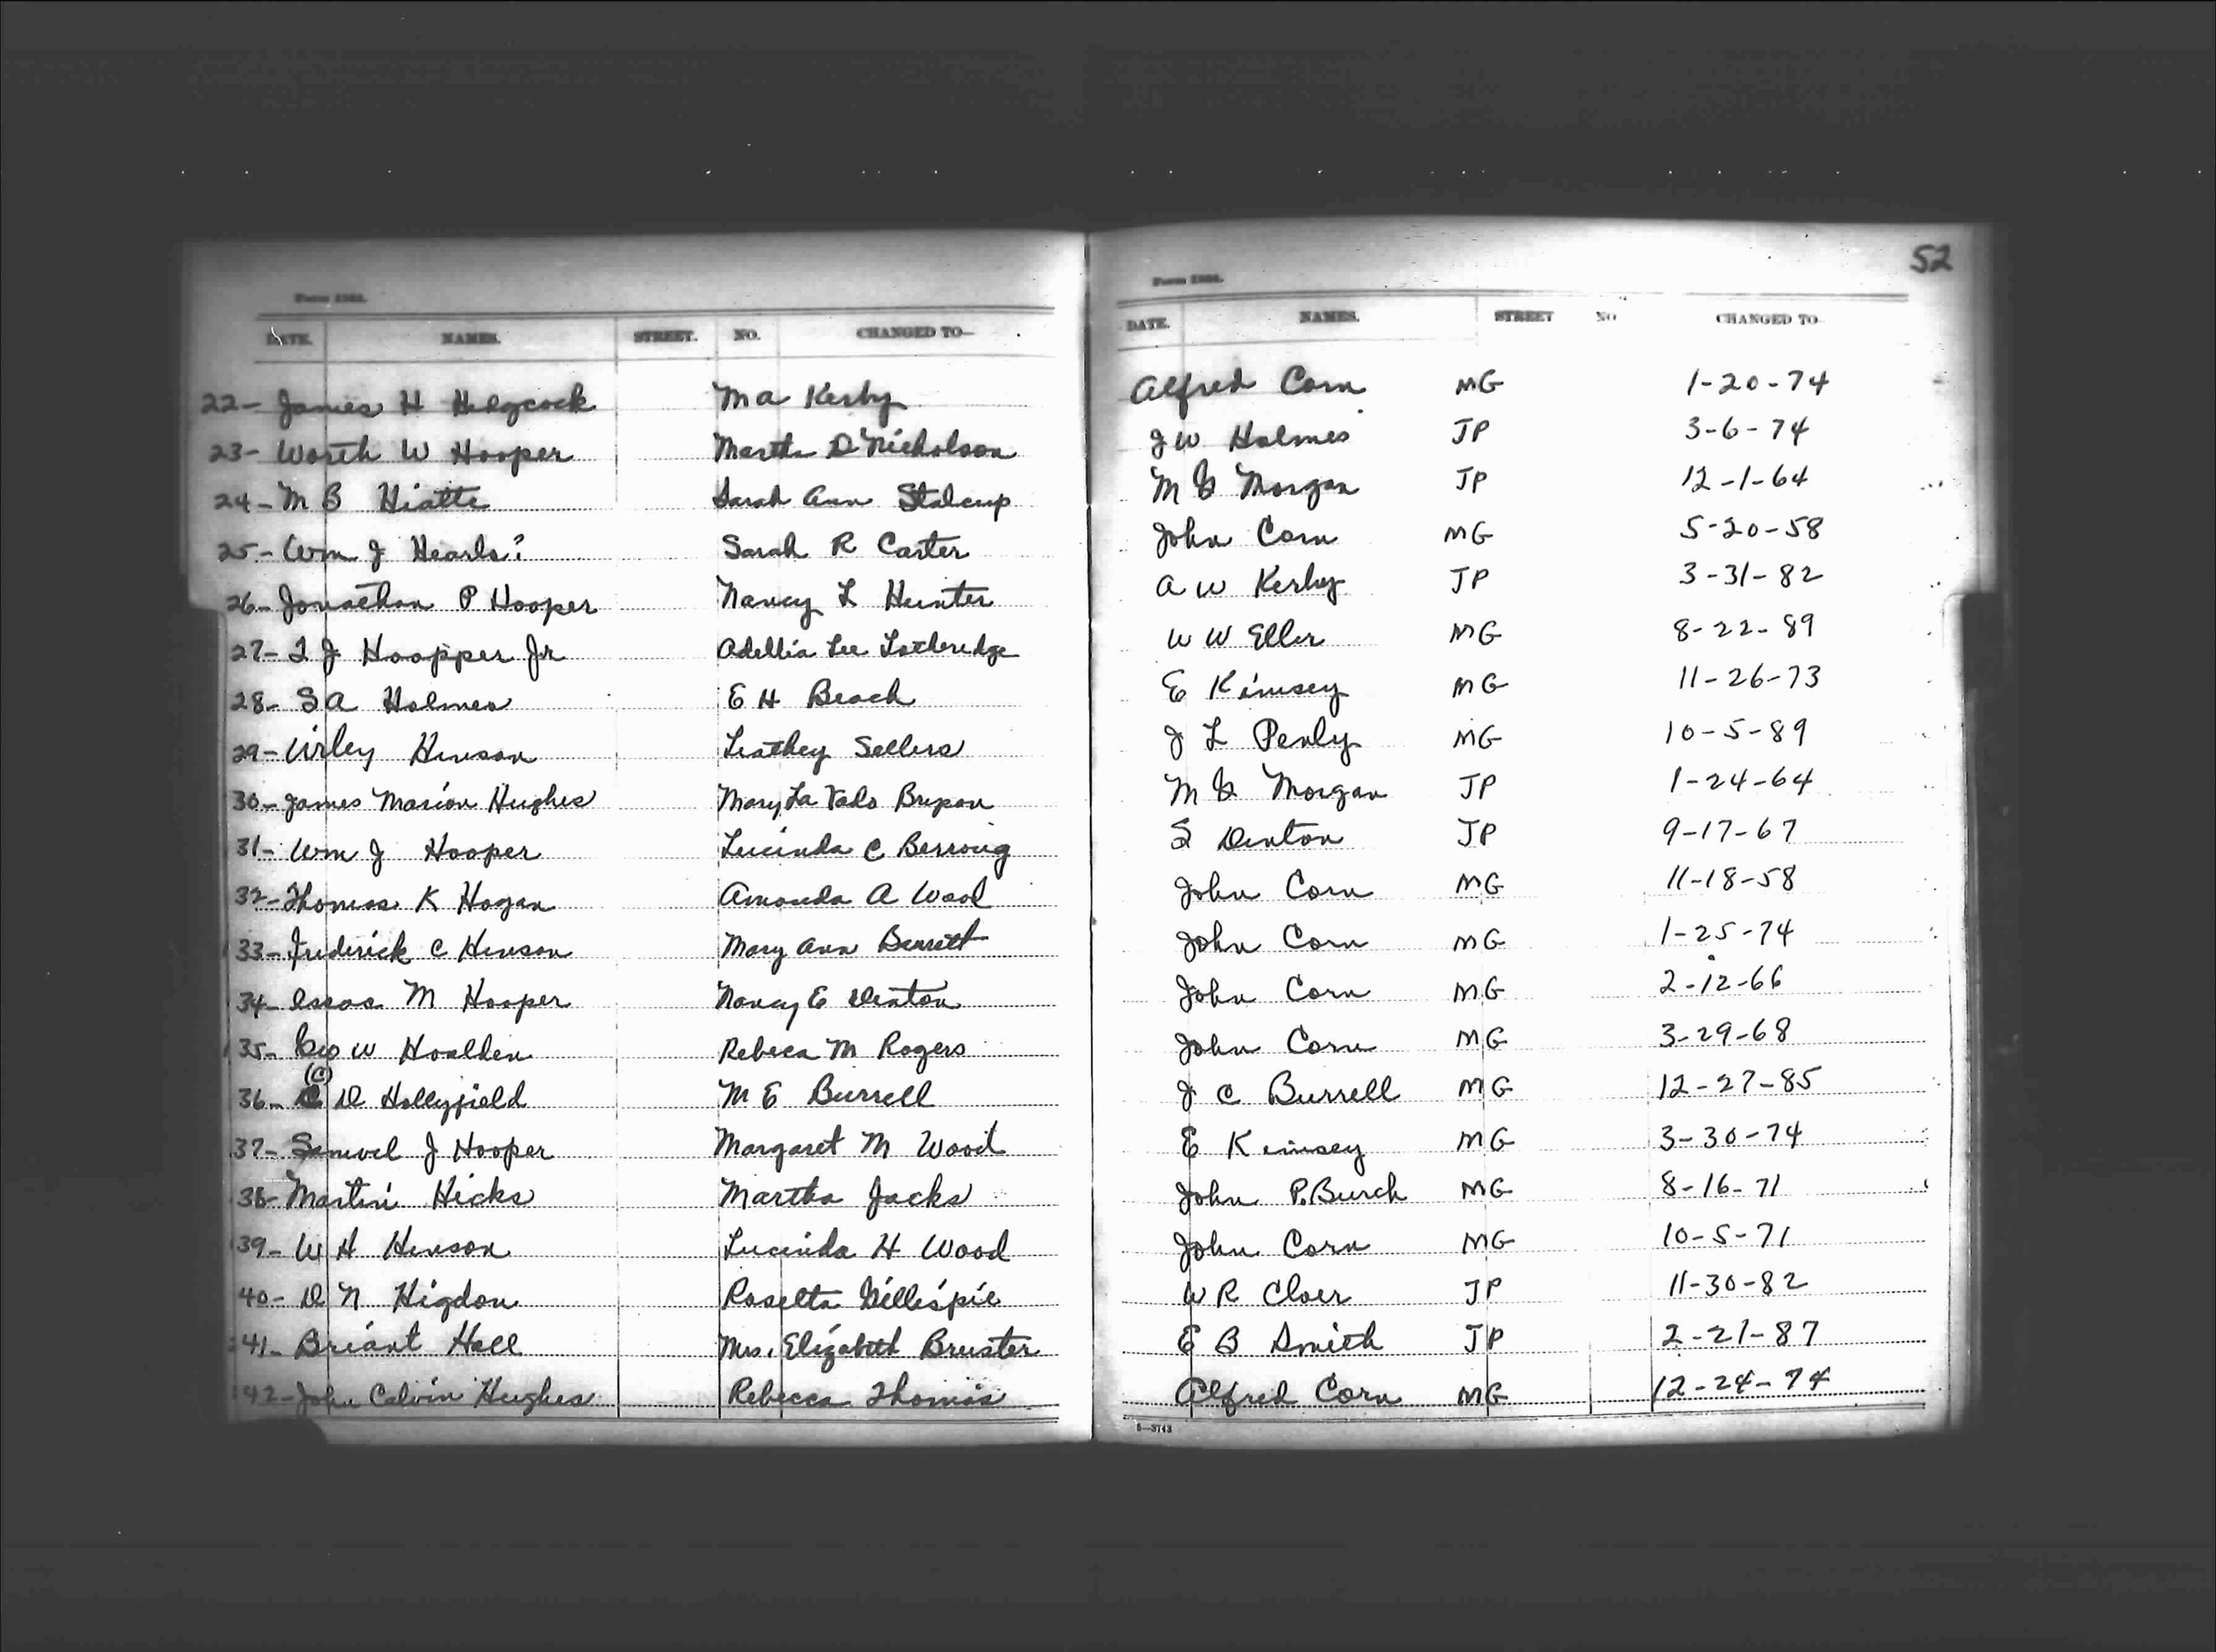 52
Form 1364.
DATE. NAMES. STREET. NO. CHANGED TO—
DATE. NAMES. STREET NO CHANGED TO
22- James H Hedgcock M A Kerby Alfred Corn MG 1-20-74
23- Worth W Hooper Martha D Nicholson J W Holmes JP 3-6-74
24- M B Hiatte Sarah Ann Stalcup M G Morgan JP 12-1-64
25- Wm J Hearls? Sarah R Carter John Corn MG 5-20-58
26- Jonathan P Hooper Nancy L Hunter A W Kerby JP 3-31-82
27- T J Hoopper Jr Adellia Lee Lotheredge W W Eller MG 8-22-89
28- S A Holmes E H Beach E Kimsey MG 11-26-73
29- Virley Henson Leathey Sellers J L Penly MG 10-5-89
30- James Marion Hughes Mary La Vada M G Morgan JP 1-24-64
31- Wm J Hooper Lucinda C Berrong S Denton JP 9-17-67
32- Thomas K Hogan Amanda A Wood John Corn MG 11-18-58
33- Frederick C Henson Mary Ann Barrett John Corn MG 1-25-74
34- Isaac M Hooper Nancy E Denton John Corn MG 2-12-66
35- Geo W Hoalden Rebeca M Rogers John Corn MG 3-29-68
36- (C) D Hollyfield M E Burrell J C Burrell MG 12-27-85
37- Samuel J Hooper Margaret M Wood E Kimsey MG 3-30-74
38- Martin Hicks Martha Jacks John P. Burch MG 8-16-71
39- W H Henson Lucinda H Wood John Corn MG 10-5-71
40- D N Higdon Rosetta Gillespie W R Cloer JP 11-30-82
41- Briant Hall Mrs. Elizabeth Bruster E B Smith JP 2-21-87
42- John Calvin Hughes Rebecca Thomas Alfred Corn MG 12-24-74
5—3743